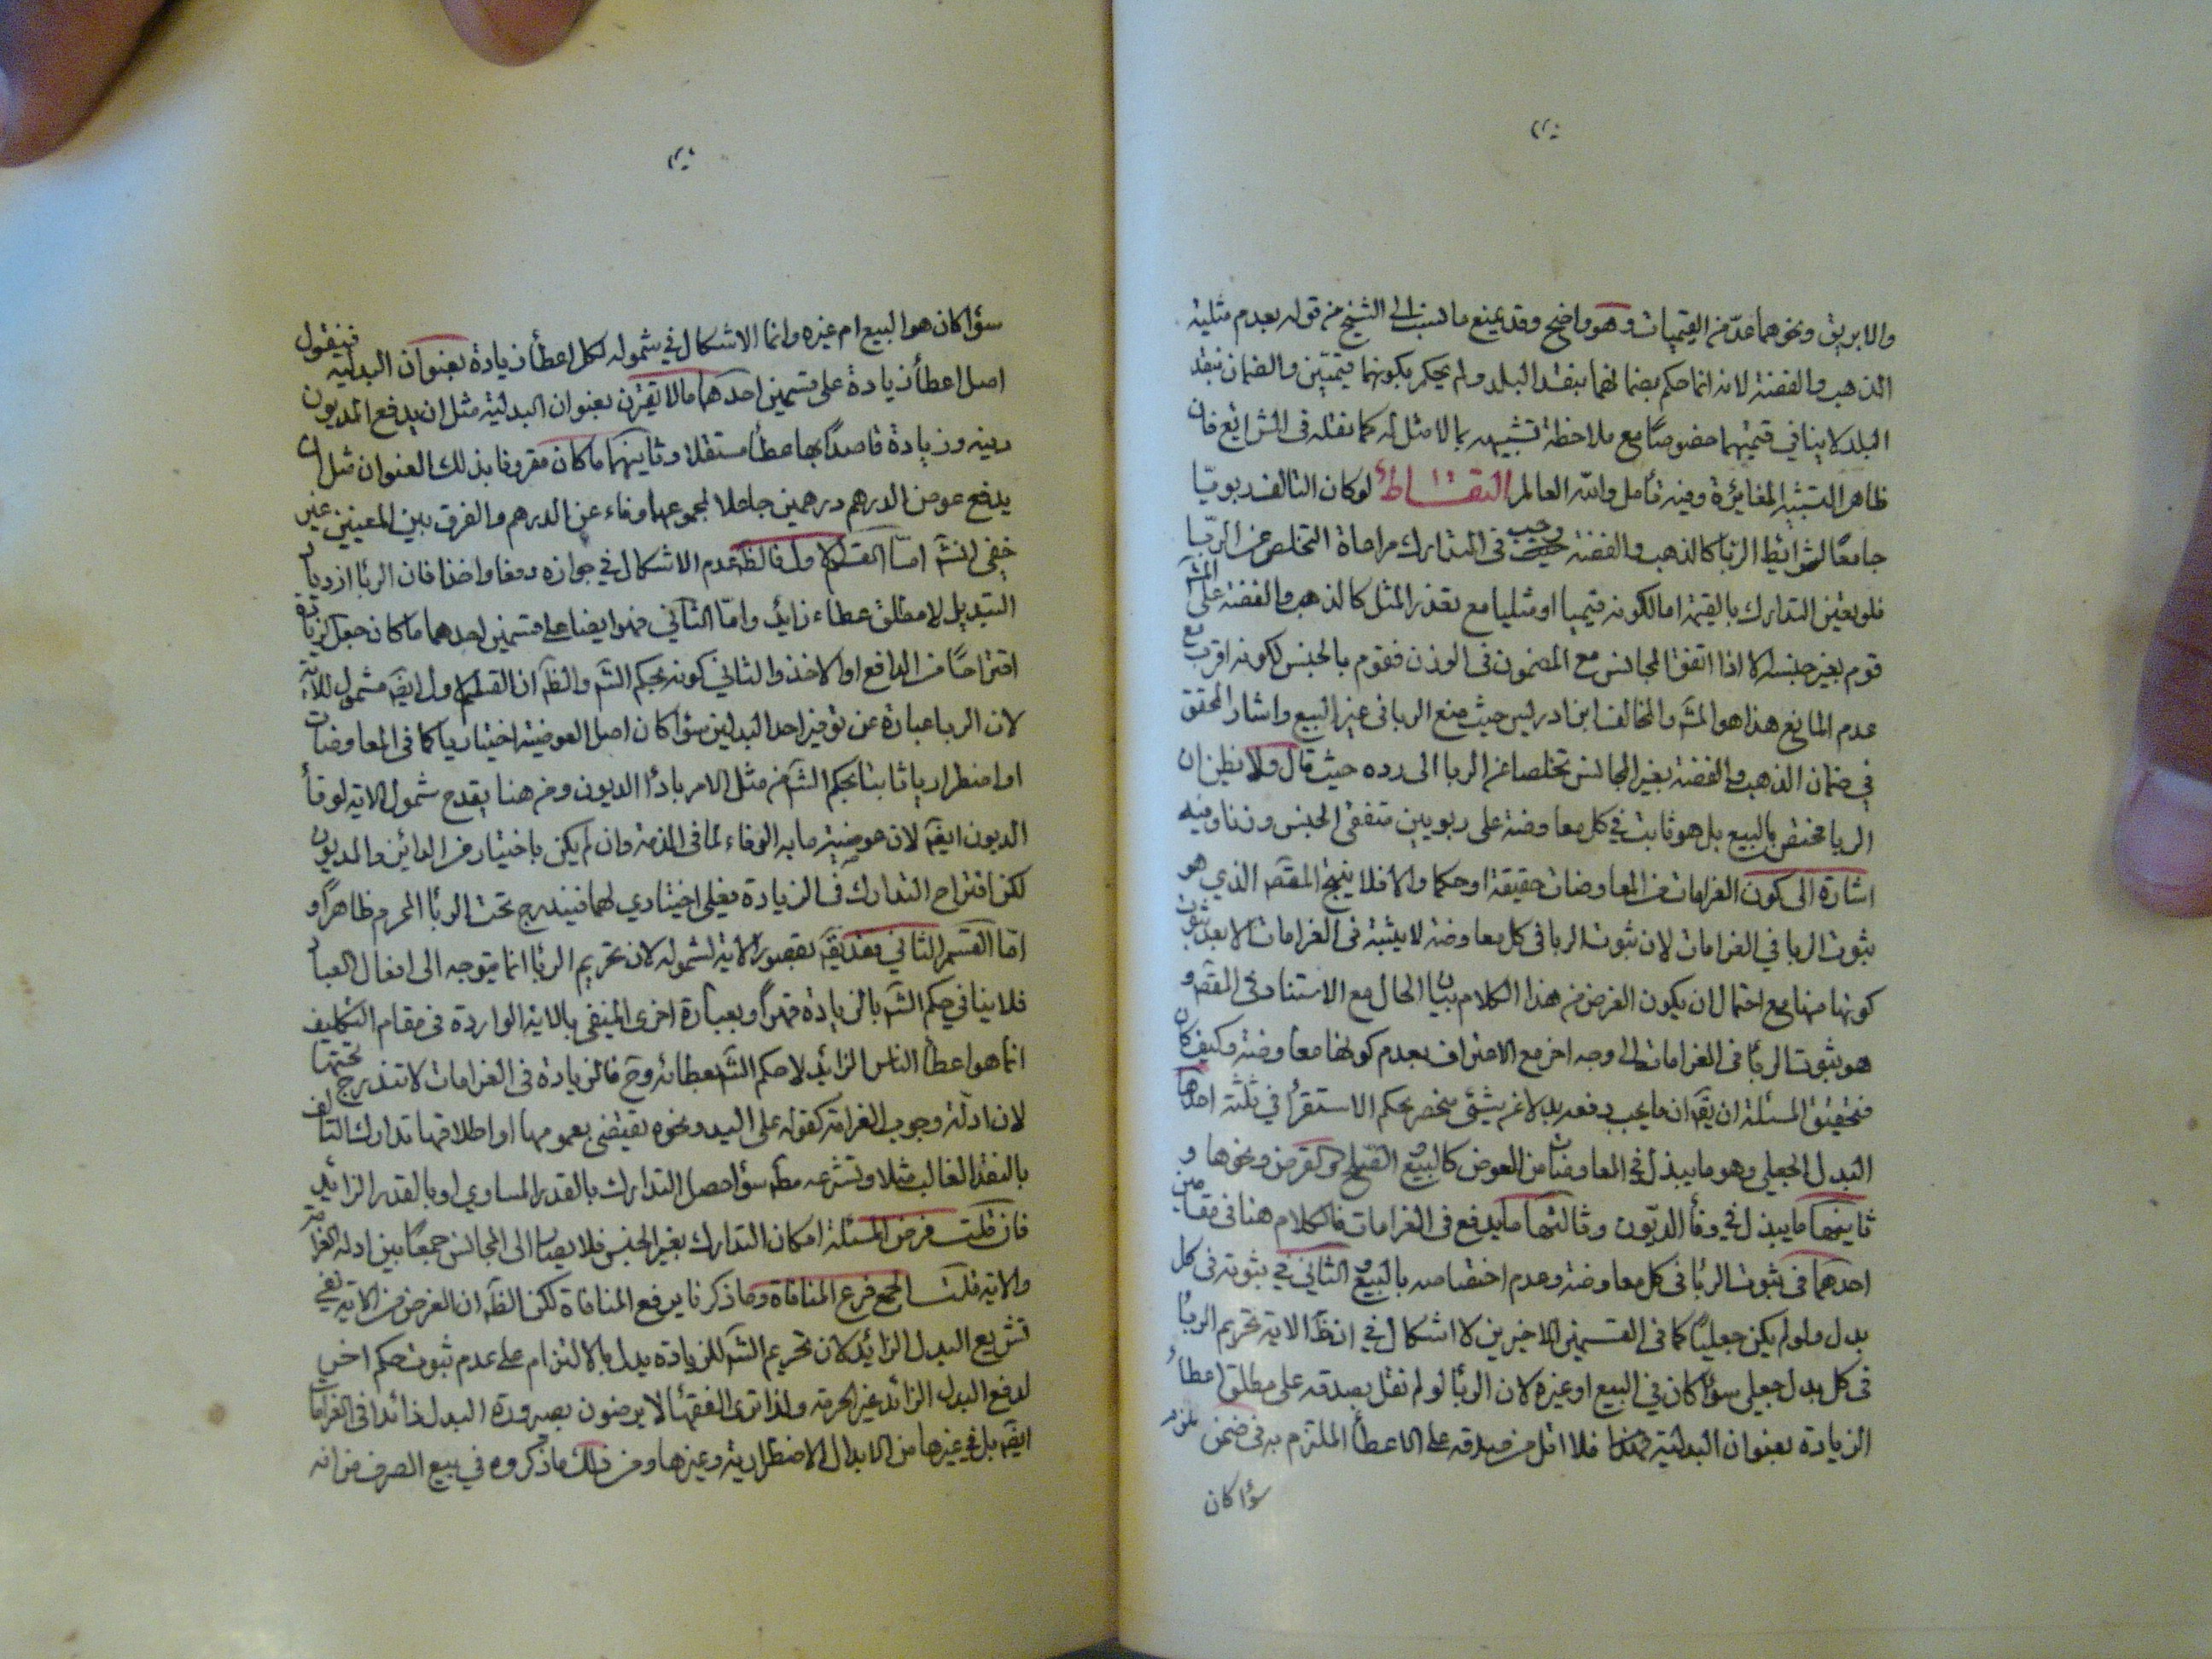 والابريق ونحوهما عدّ من القيميات وهو واضح وقد يمنع ما نسب الى الشيخ من قوله بعدم مثلية
الذهب والفضة لانه انما حكم بضمانهما بنقد البلد ولم يحكم بكونهما قيميّين والضمان بنقد
البلد لا ينافي قيميتهما خصوصًا مع ملاحظة تشبيهه بما لا مثل له كما نقله في الشرائع فان
ظاهر التشبيه المغايرة وفيه تأمل والله العالم التقــاط لو كان التالف ربويّا
جامعًا لشرائط الربا كالذهب والفضة وجب في التدارك مراعاة التخلص عن الربّا
فلو تعين التدارك بالقيمة اما لكونه قيميا او مثليا مع تعذر المثل كالذهب والفضة على المشه
قوم بغير جنسه الا اذا اتفق المجانس مع المضمون في الوزن فقوم بالجنس لكونه اقرب مع
عدم المانع هذا هو المشه والمخالف ابن ادريس حيث منع الربا في غير البيع واشار المحقق
في ضمان الذهب والفضة بغير المجانس تخلصا عن الربا الى رده حيث قال ولا يظن ان
الربا مختص بالبيع بل هو ثابت في كل معاوضة على ربويين متفقي الجنس وزنا وفيه
اشارة الى كون الغرامات من المعاوضات حقيقة او حكما والا فلا ينتج المقصه الذي هو
ثبوت الربا في الغرامات لان ثبوت الربا في كل معاوضة لا يثبته في الغرامات الا بعد ثبوت
كونها منها مع احتمال ان يكون الغرض من هذا الكلام بيان الحال مع الاستناد في المقصه و
هو ثبوت الربّا في الغرامات الى وجه اخر مع الاعتراف بعدم كونها معاوضة وكيف كان
فتحقيق المسئلة ان يقه ان ما يجب دفعه بدلا عن شئ منحصر بحكم الاستقرأ في ثلثة احدها
البدل الجعلي وهو ما يبذل في المعاوضات من العوض كالبيع والصلح والقرض ونحوها و
ثانيهما ما يبذل في وفأ الديّون وثالثها ما يدفع في الغرامات فالكلام هنا في مقامين
احدهما في ثبوت الربّا في كل معاوضة وعدم اختصاصه بالبيع والثاني في ثبوته في كل
بدل ولو لم يكن جعليًّا كما في القسمين الاخيرين لا اشكال في ان ظ الاية تحريم الربّا
في كل بدل جعلي سوأ كان في البيع او غيره لان الربّا لو لم نقل بصدقه على مطلق اعطأ
الزيادة بعنوان البدلية فلا اقل من صدقه على الاعطأ الملتزم به في ضمن
سوأ كان
سوأ كان هو البيع ام غيره وانما الاشكال في شموله لكل اعطأ زيادة بعنوان البدلية فنقول
اصل اعطأ زيادة على قسمين احدهما ما لا يقترن بعنوان البدلية مثل ان يدفع المديون
دينه وزيادة قاصدًا بها عطأ مستقلا وثانيهما ما كان مقرونا بذلك العنوان مثل ان
يدفع عوض الدرهم درهمين جاعلا لمجموعهما وفاء عن الدرهم والفرق بين المعنيين غير
خفي انشه امّا القسم الاول فالظه عدم الاشكال في جوازه دفعا واخذا فان الربا ازدياد
التبديل لا مطلق عطاء زائد وامّا الثاني فهو ايضا على قسمين احدهما ما كان جعل الزيادة
اقتراحًا من الدافع او الاخذ والثاني كونه بحكم الشه والظه ان القسم الاول ايضه مشمول للاية
لان الربا عبارة عن توفير احد البدلين سوأ كان اصل العوضية اختياريا كما في المعاوضات
او اضطراريا ثابتا بحكم الشه من مثل الامر بادأ الديون ومن هنا يقدح شمول الاية لوفأ
الديون ايضه لان عوضية ما به الوفاء لما في الذمة وان لم يكن باختيار من الدائن والمديون
لكن اقتراح التدارك في الزيادة فعلي اختياري لهما فيندرج تحت الربّا المحرم ظاهرًا و
امّا القسم الثاني فقد يقه بقصور الاية لشموله لان تحريم الربّا انما يتوجه الى افعال العباد
فلا ينافي حكم الشه بالزيادة قهرًا وبعبارة اخرى المنفي بالاية الواردة في مقام التكليف
انما هو اعطأ الناس الزائد لا حكم الشه بعطائه وح فالزيادة في الغرامات لا تندرج تحتها
لان ادلّة وجوب الغرامة كقوله على اليد ونحوه يقتضي بعمومها او اطلاقها تدارك التالف
بالنقد الغالب مثلا وتشرعه مطه سوأ حصل التدارك بالقدر المساوي او بالقدر الزائد
فان قلت فرض المسئلة امكان التدارك بغير الجنس فلا يصار الى المجانس جمعًا بين ادلة الغرامة
والاية قلت الجمع فرع المنافاة وما ذكرنا يرفع المنافاة لكن الظه ان الغرض من الاية نفي
تشريع البدل الزائد لان تحريم الشه للزيادة يدل بالالتزام على عدم ثبوت حكم اخر
لدفع البدل الزائد غير الحرمة ولذا ترى الفقهأ لا يرضون بصيرورة البدل زائدا في الغرامات
ايضه بل في غيرها من الابدال الاضطرارية وغيرها ومن ذلك ما ذكروه في بيع الصرف من انه